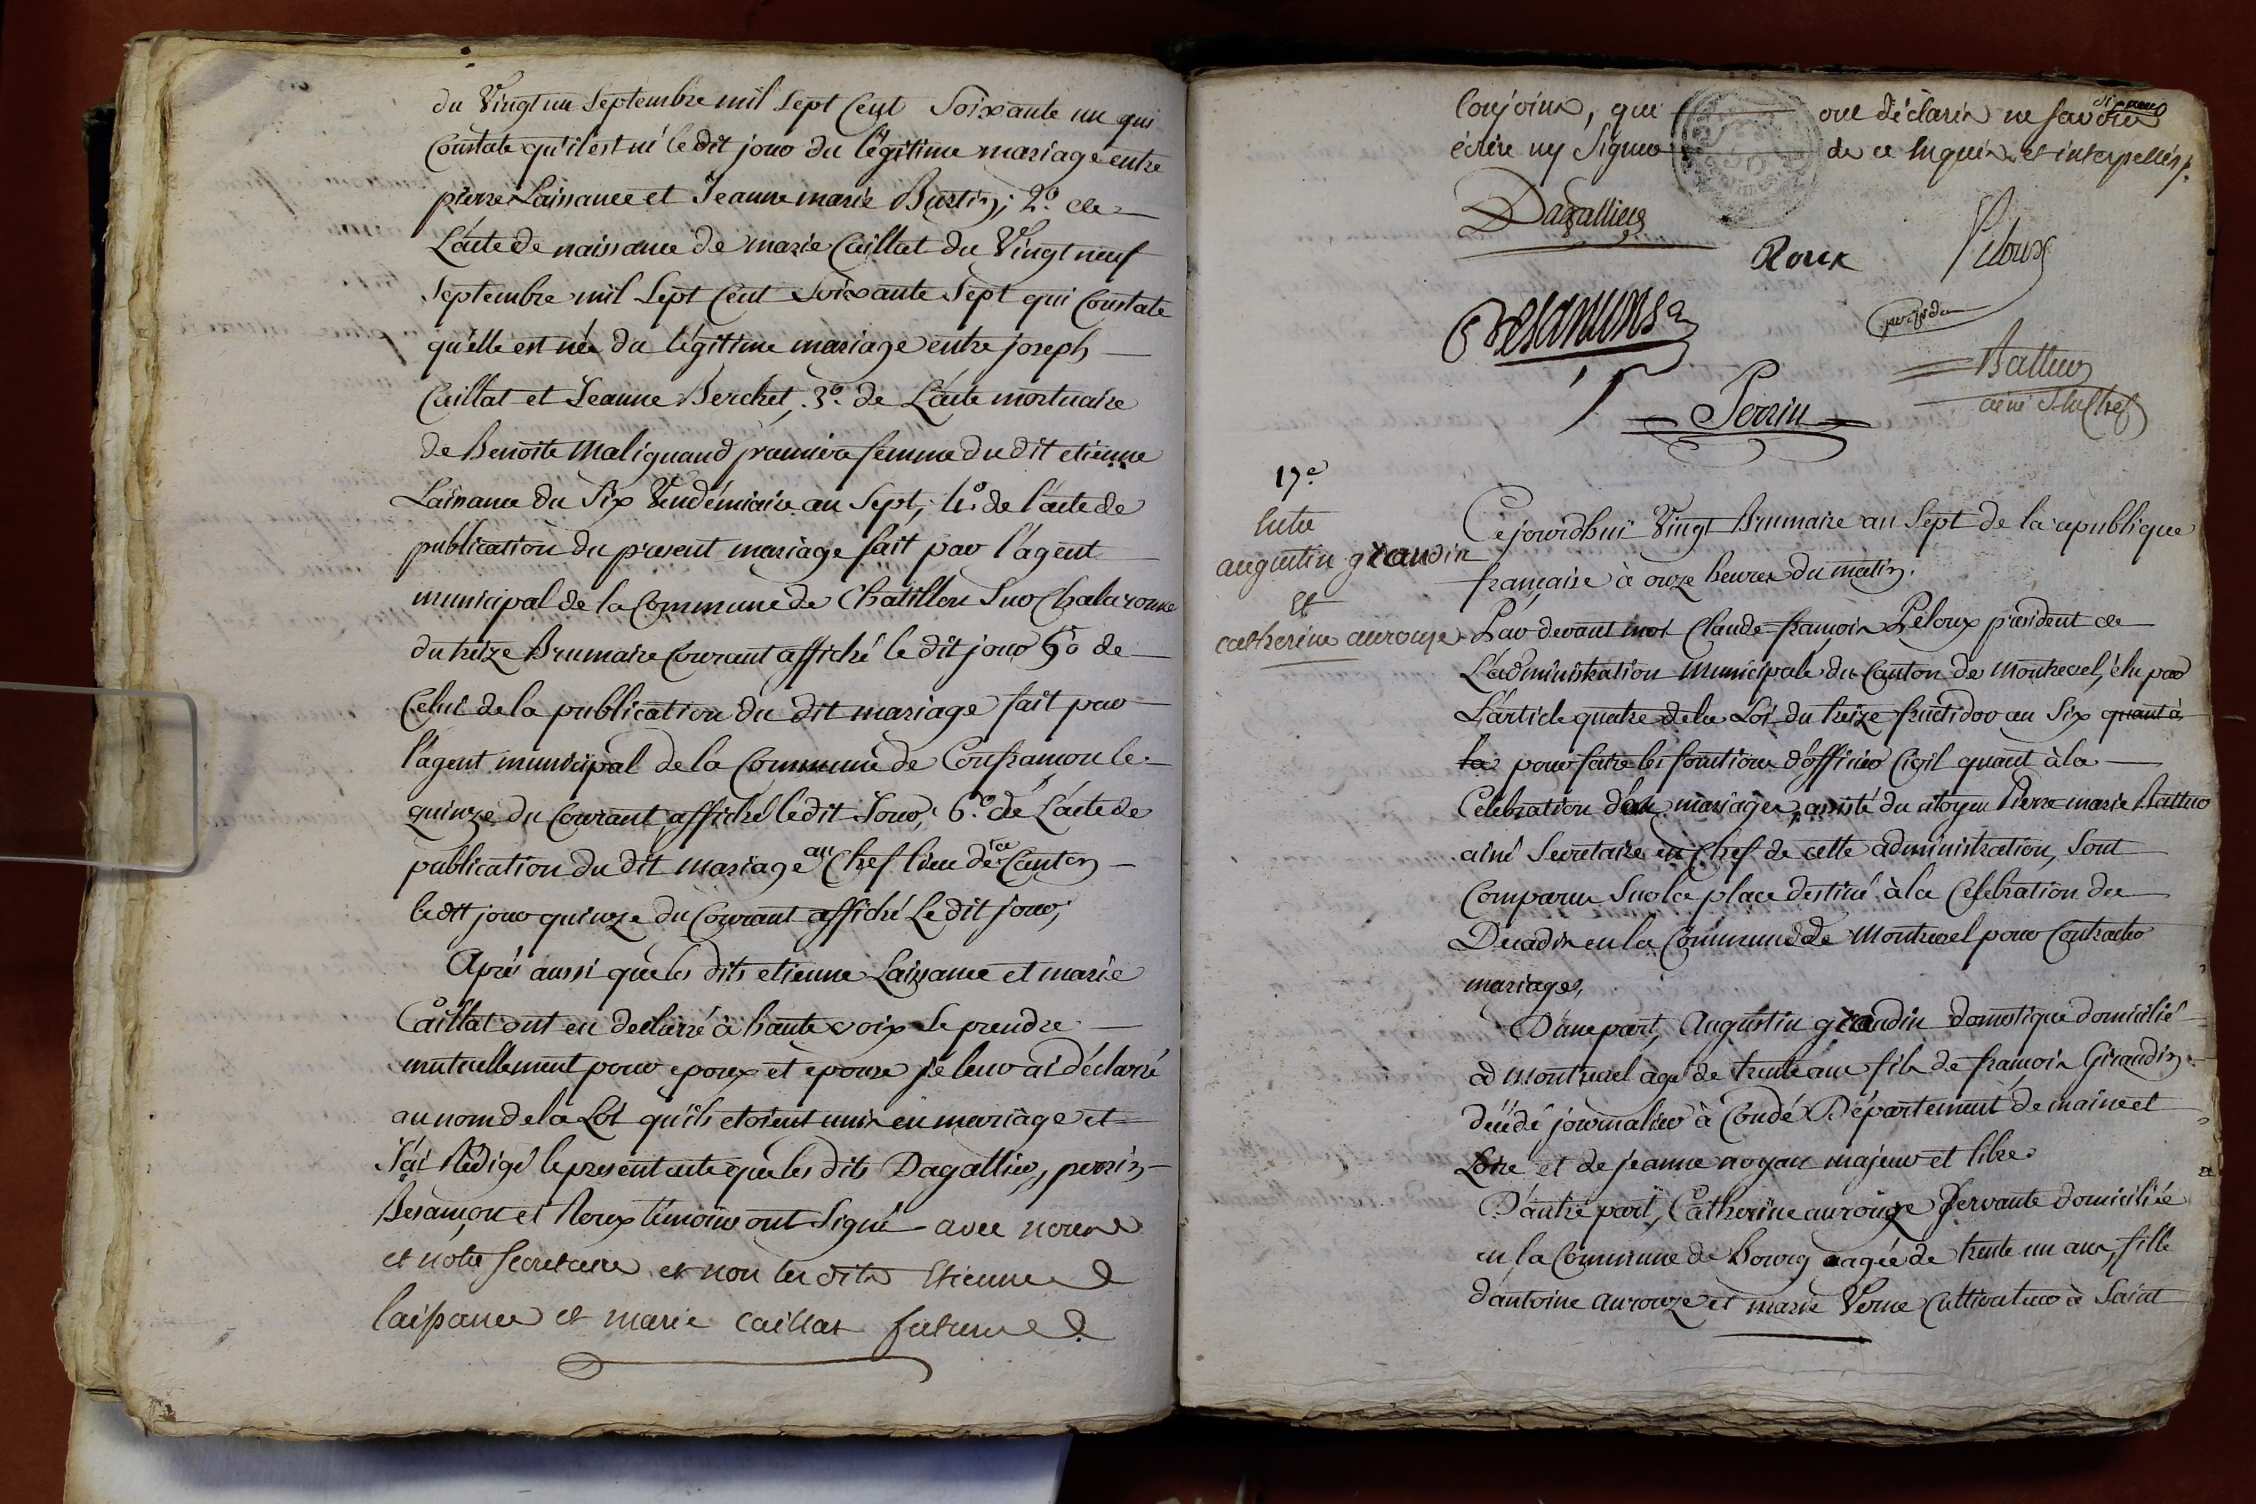 du Vingt un Septembre mil Sept Cent Soixante un qui
Constate qu'il est né le dit jour du légitime mariage entre
pierre Laissance et Jeanne marie Burtin; 2.º de
L'acte de naissance de marie Caillat du Vingt neuf
Septembre mil Sept Cent Soixante Sept qui Constate
qu'elle est née du légitime mariage entre joseph
Caillat et Jeanne Berchet, 3.º de L'acte mortuaire
de Benoite Maliguand premiere femme du dit etienne
Laissance du Six Vendémiaire an Sept, 4.º de l'acte de
publication du present mariage fait par l'agent
municipal de la Commune de Chatillon Sur Chalaronne
du treize Brumaire Courant affiché le dit jour 5º de
Celui de la publication du dit mariage fait par
l'agent municipal de la Commune de Confrançon le
quinze du Courant affiché le dit Jour, 6.º de L'acte de
publication du dit mariage au Chef lieu de ce Canton
le dit jour quinze du Courant affiché Le dit jour;
Après aussi que les dits etienne Laissance et marie
Caillat ont eu declarré à haute voix se prendre
mutuellement pour epoux et epouse je leur ai déclarré
au nom de la Loi qu'ils etoient unis en mariage et
J'ai Rédigé le present acte que les dits Dagallier, perrin
Besançon et Roux témoins ont Signé avec nous
et notre secretaire et non les dits Etienne
laissance et marie caillat futurs
Conjoins, qui ont déclarés ne savoir
écrire ny Signer de ce Enquis et interpellés.
Dagallier
Roux
Peloux
président
Besançon
Battur
ainé S. en Chef
Perrin
17.e
Entre
augustin giraudin
Et
catherine aurouze
Cejourdhui Vingt Brumaire an Sept de la republique
française à onze heures du matin.
Par devant moi Claude françois Péloux président de
L'administration Municipale du Canton de Montrevel, élu par
L'article quatre de la Loi du treize fructidor an Six quant à
la pour faire les fonctions d'officier Civil quant à la
Célébration des mariages, assisté du citoyen Pierre marie Battur
ainé Secretaire en Chef de cette administration, Sont
Comparus Sur la place destiné à la Celebration des
Decadis en la Commune de Montrevel pour Contracter
mariages,
D'une part, Augustin giraudin domestique domicilié
à Montrevel agé de trente ans fils de françois Giraudin
décédé journalier à Condé Département de maine et
Loire et de jeanne noyau majeur et libre
D'autre part, Catherine aurouze Servante domiciliée
en la Commune de Bourg agée de trente un ans, fille
d'antoine aurouze et marie Verne Cultivateur à Saint